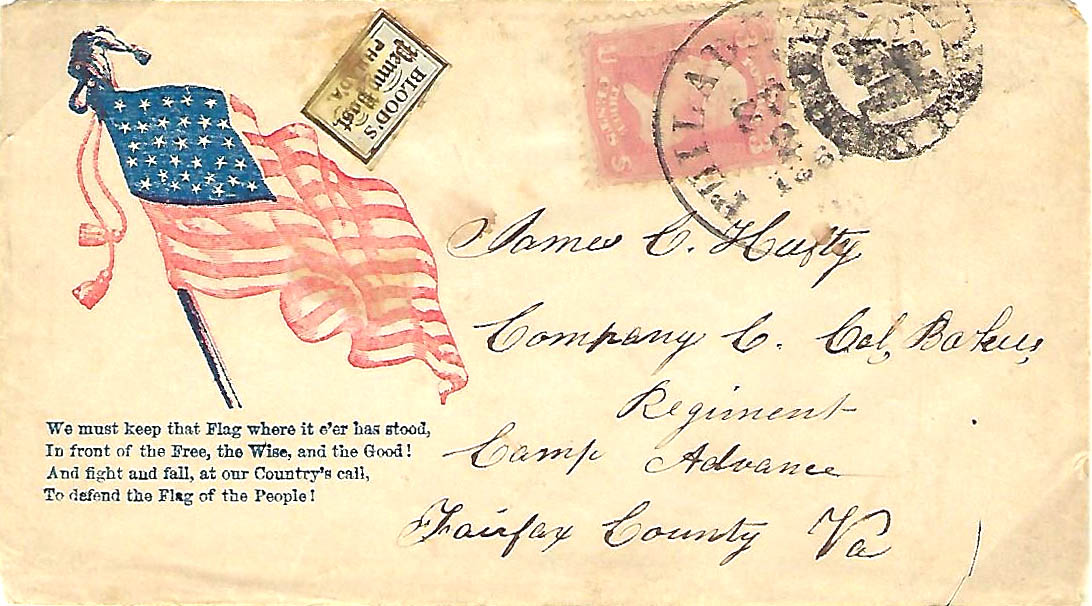 BLOOD'S
Penny Post
PHILADA
U S
3 3
THREE
CENTS
PHILAD
186
James C. Hufty
Company C. Col, Bakers,
Regiment
Camp Advance
Fairfax County Va
We must keep that Flag where it e'er has stood,
In front of the Free, the Wise, and the Good!
And fight and fall, at our Country's call,
To defend the Flag of the People!